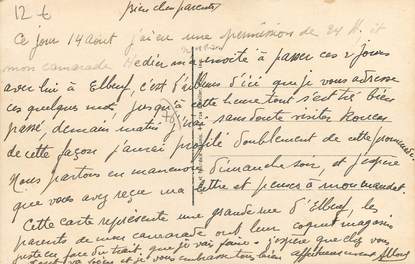 12 €
Bien chers parents
Ce jour 14 Août j'ai eu une permission de 24 H. et
mon camarade m'a invité à passer ces 2 jours
avec lui à Elbeuf, c'est d'ailleurs d'ici que je vous adresse
ces quelques mots, jusqu'à cette heure tout s'est très bien
passé, demain matin j'irai sans doute visiter Rouen
de cette façon j'aurai profité doublement de cette
Nous partons en manœuvre dimanche soir, et j'espère
que vous avez reçu ma lettre et pensez à mon mandat.
Cette carte représente une grande rue d'Elbeuf, les
parents de mon camarade ont leur coquet magasin
juste en face du trait que je vais faire - j'espère que chez vous
tout va bien et je vous embrasse tous bien affectueusement